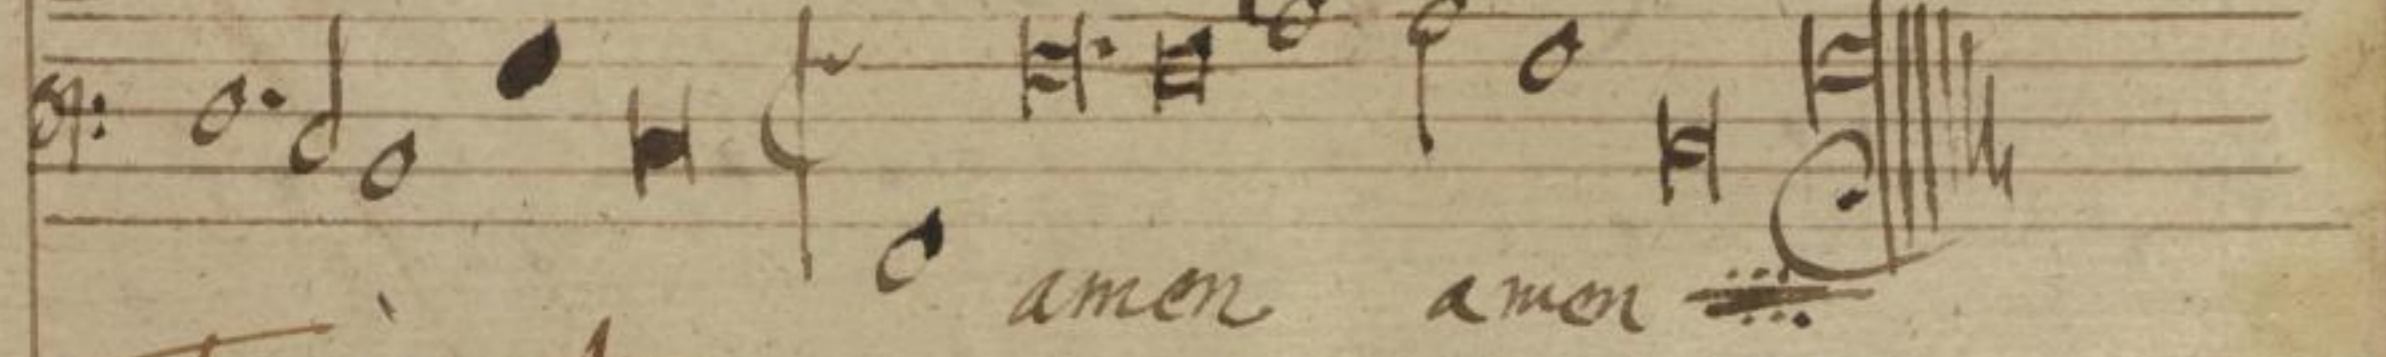 amen amen